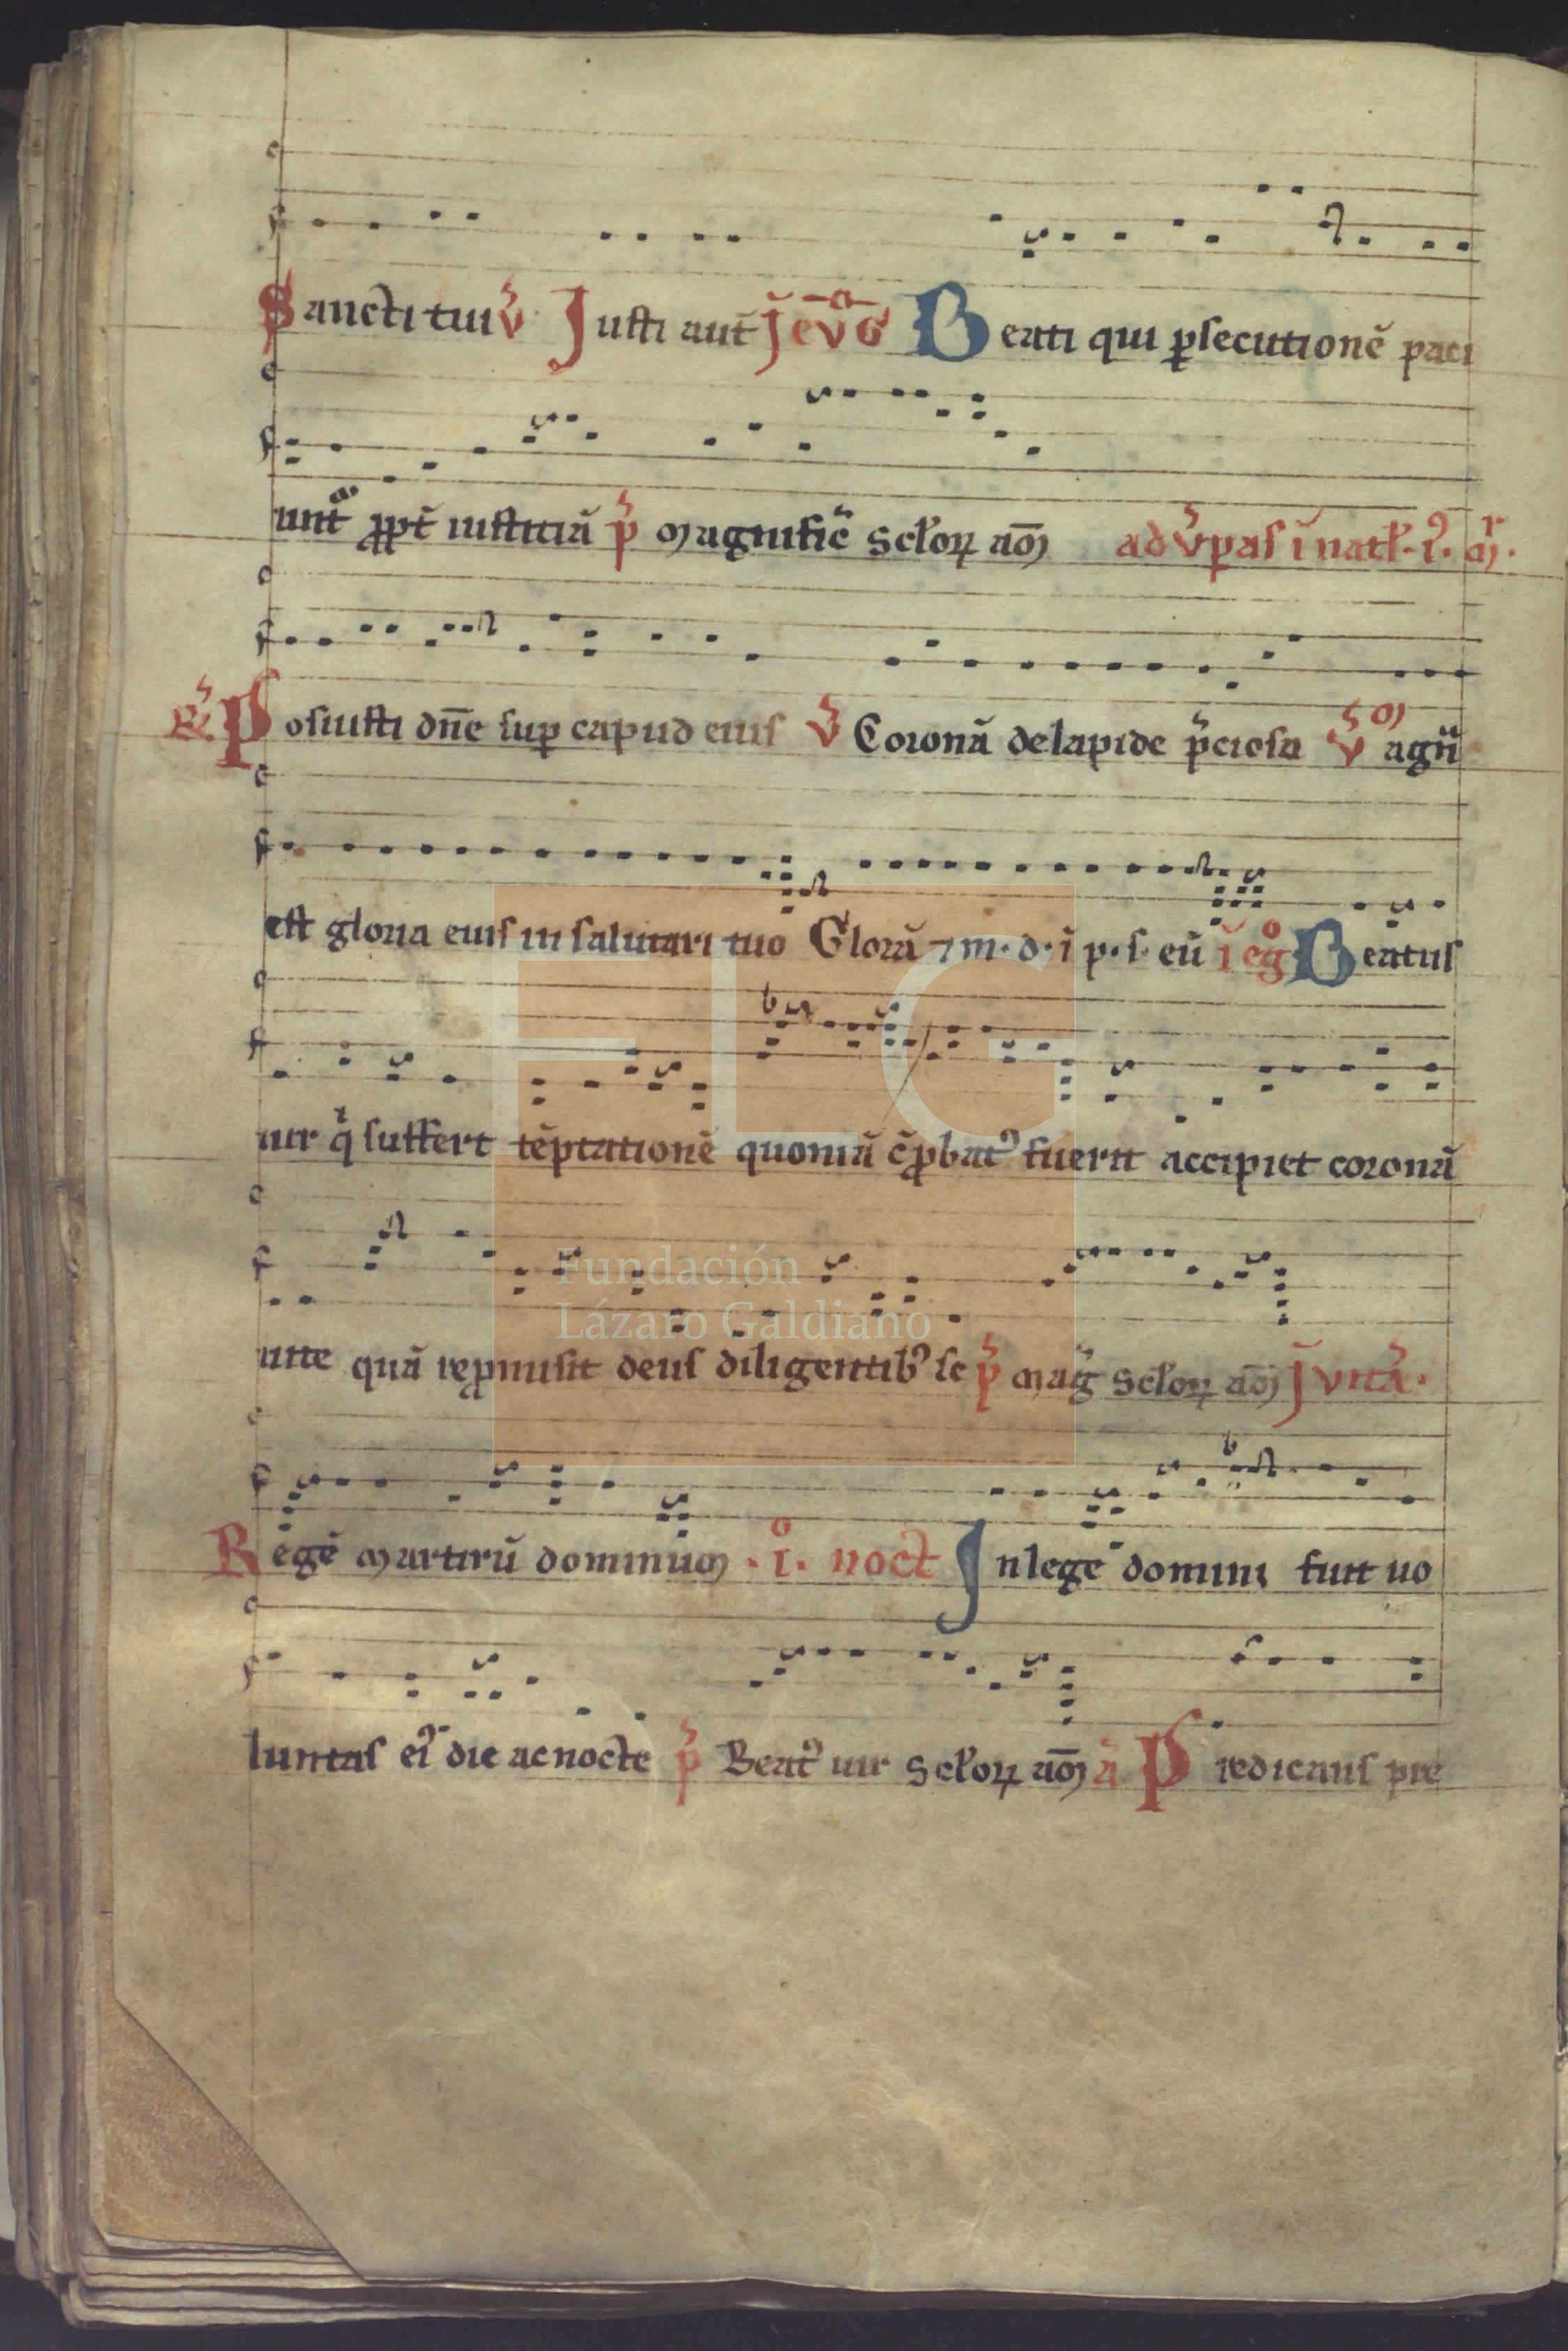 Sancti tui v̄ Justi aut̄ J̄ evḡ Beati qui ꝑsecutionē paci
unt̄ ꝓpt̄ iusticiā p̄ Magnific̄ Sctōꝝ aōm ad v̄pas ī natl̄. i. m̄r.
R̄. Posuisti dn̄e suꝑ capud eius v̄ Coronā de lapide p̄ciosa v̄ Magn̄
est gloria eius in salutari tuo Gloriā ⁊ m. d. ī p. s. eū ī eḡ Beatus
uir q̄ suffert tēptationē quoniā c̄ ꝓbatꝰ fuerit accipiet coronā
uite quā reꝓmisit deus diligentibꝰ se p̄ Maḡ Sctōꝝ aōm J̄ vitā.
Regē Martirū dominum . i°. noct̄ Jn lege domini fuit uo
luntas eiꝰ die ac nocte p̄ Beatꝰ uir Sctōꝝ aōm ā Predicans pre
Fundación
Lázaro Galdiano